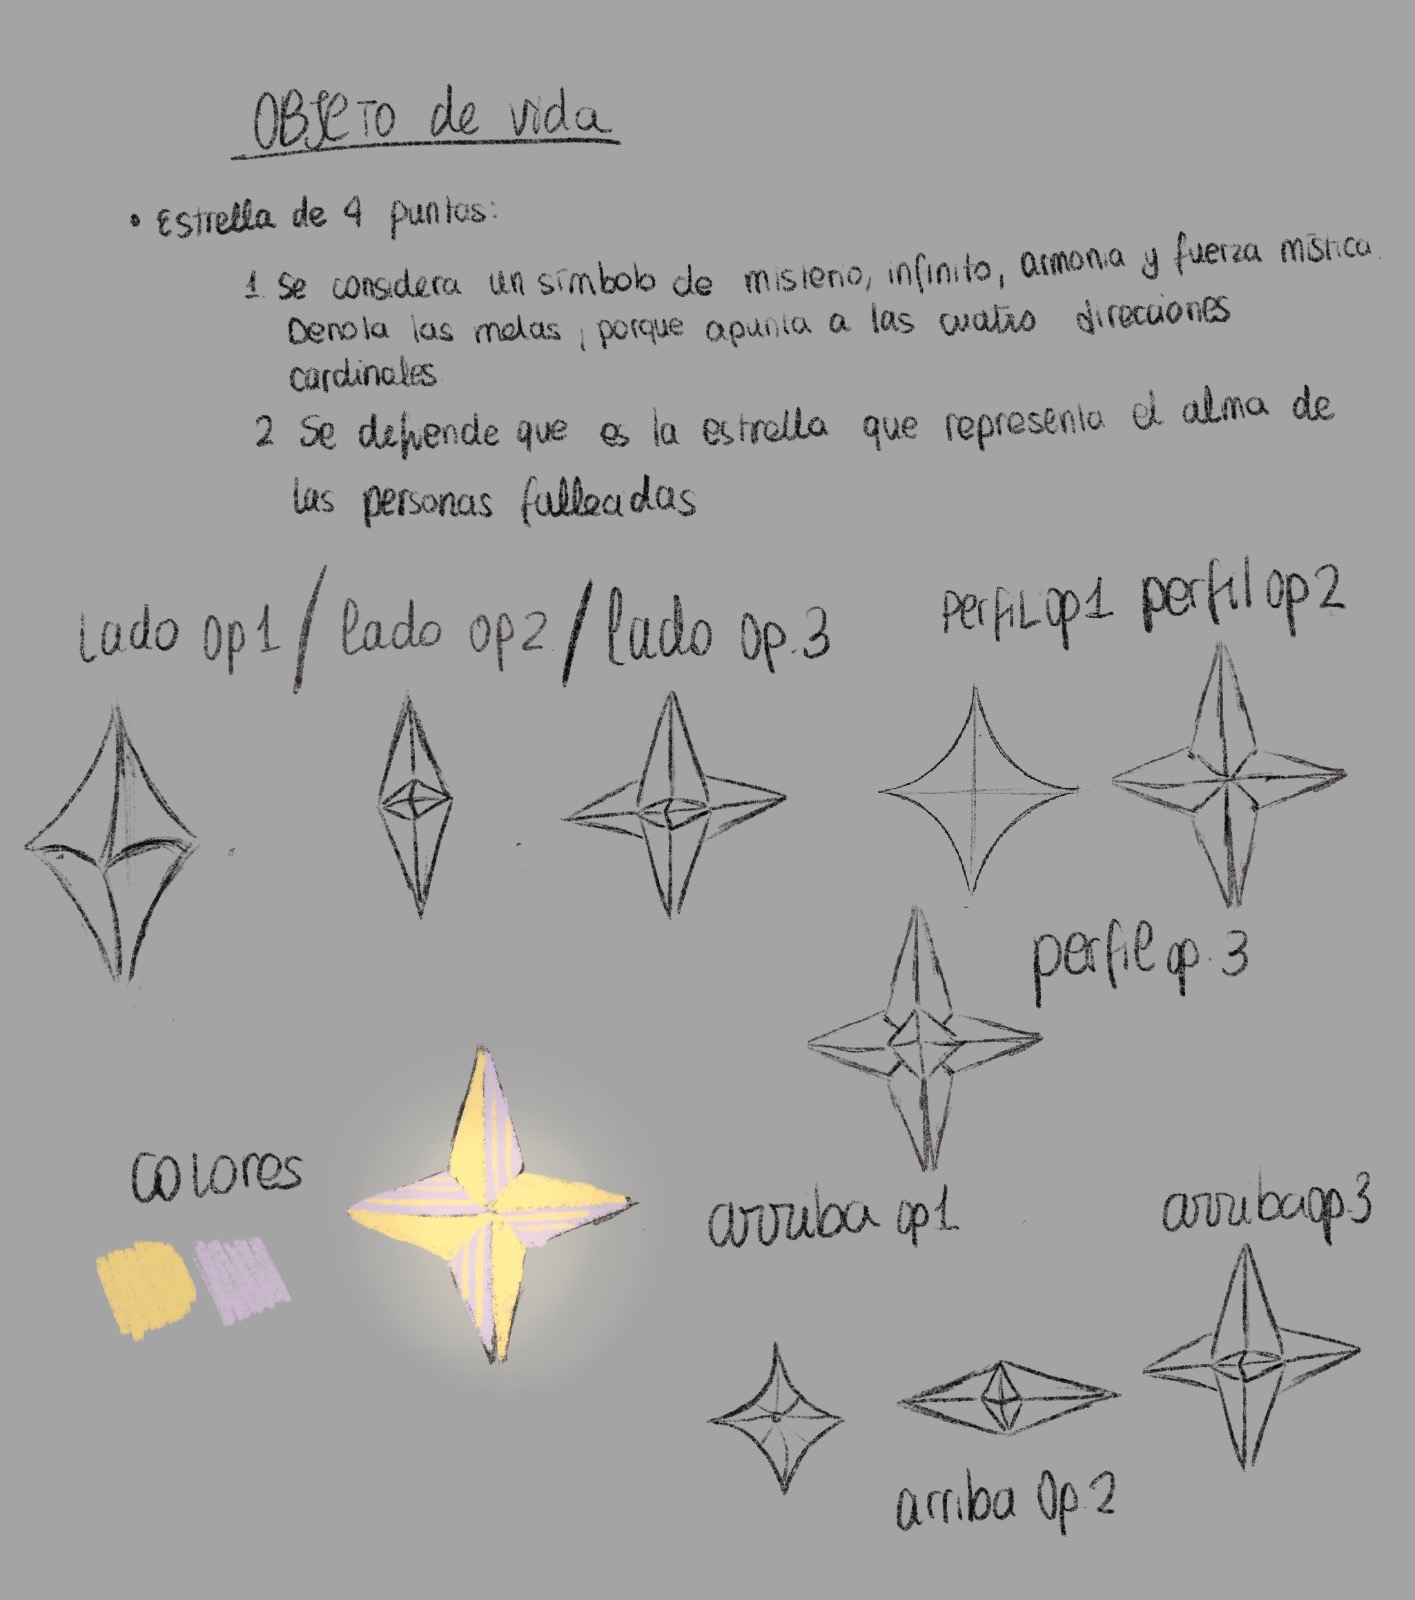 OBJETO de vida
• Estrella de 4 puntas:
1. Se considera un símbolo de misterio, infinito, armonía y fuerza mística.
Denota las metas, porque apunta a las cuatro direcciones
cardinales
2 Se defiende que es la estrella que representa el alma de
las personas fallecidas
Lado op1 / lado op2 / lado op.3
Perfil op1 perfil op2
perfil op.3
colores
arriba op1
arriba op.3
arriba op.2